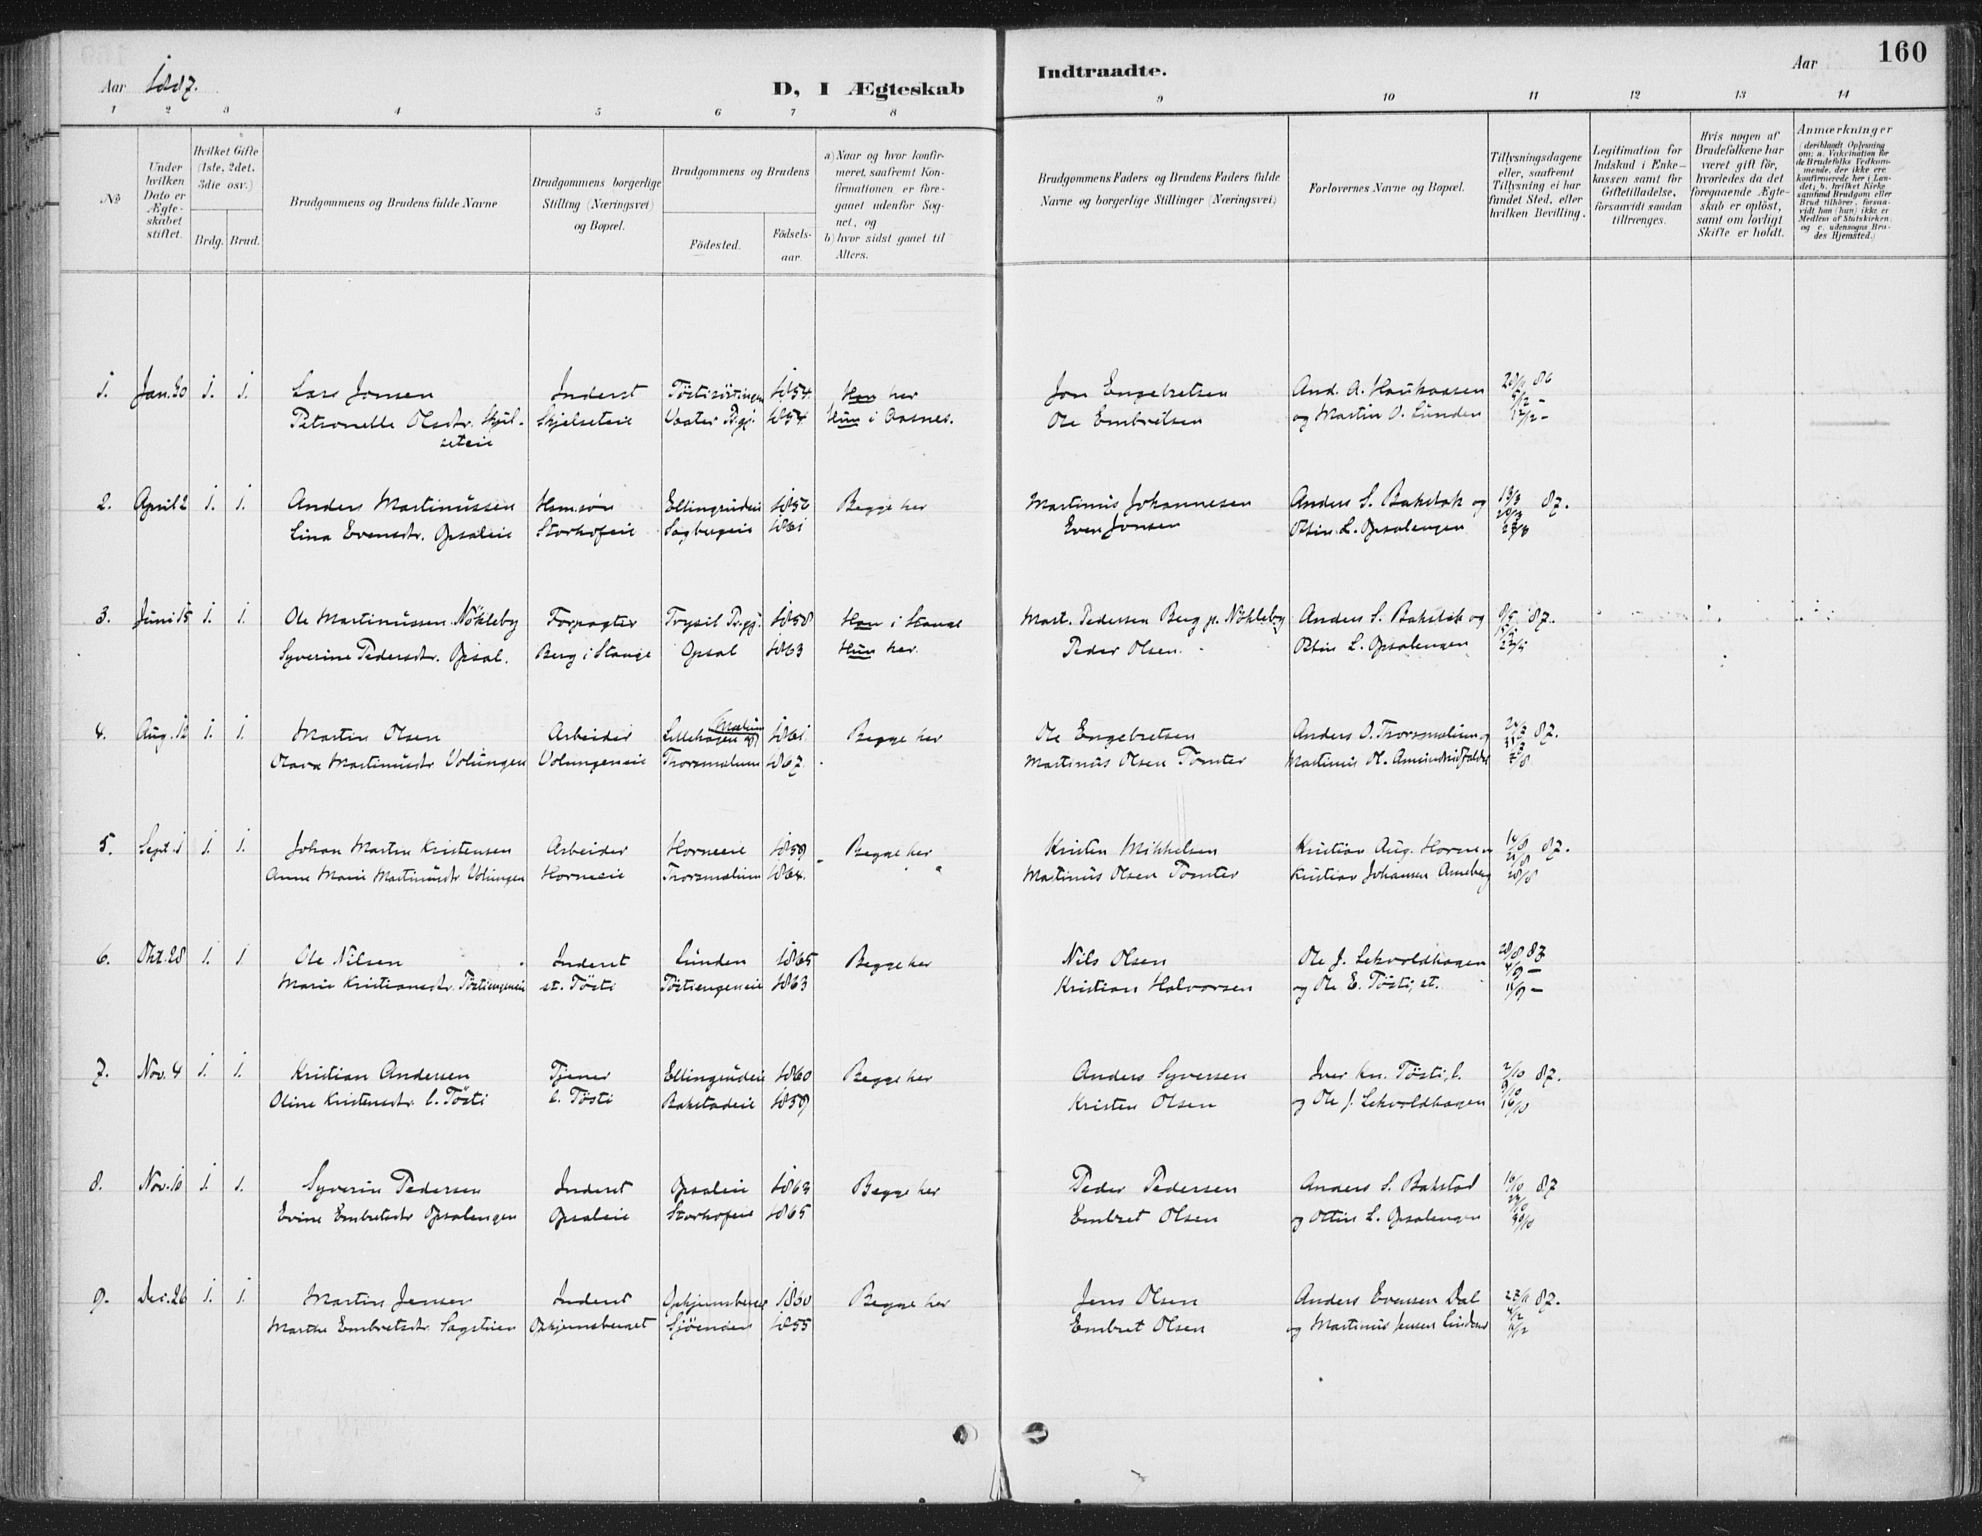 160
Aar 1887.
D, I Ægteskab
Indtraadte.
Aar
1 2 3 4 5 6 7 8 9 10 11 12 13 14
No
Under hvilken Dato er Ægteskabet stiftet.
Hvilket Gifte (1ste, 2det, 3die osv.)
Brdg. Brud.
Brudgommens og Brudens fulde Navne
Brudgommens borgerlige Stilling (Næringsvei) og Bopæl.
Brudgommens og Brudens
Födested.
Födsels-aar.
a) Naar og hvor konfir-
meret, saafremt Kon-
firmationen er fore-
gaaet udenfor Sog-
net, og
b) hvor sidst gaaet til
Alters.
Brudgommens Faders og Brudens Faders fulde
Navne og borgerlige Stillinger (Næringsvei)
Forlovernes Navne og Bopæl.
Tillysningsdagene
eller, saafremt
Tillysning ei har
fundet Sted, efter
hvilken Bevilling.
Legitimation for
Indskud i Enke-
kassen samt for
Giftetilladelse,
forsaavidt saadan
tiltrænges.
Hvis nogen af
Brudefolkene har
været gift för,
hvorledes da det
foregaaende Ægte-
skab er oplöst,
samt om lovligt
Skifte er holdt.
Anmærkninger
(deriblandt Oplysning
om: a. Vakcination for
de Brudefolks Vedkom-
mende, der ikke ere
konfirmerede her i Lan-
det; b. hvilket Kirke-
samfund Brudgom eller
Brud tilhörer, forsaa-
vidt han (hun) ikke er
Medlem af Statskirken;
og c. udensogns Bru-
des Hjemsted.)
1. Jan. 30 1. 1. Lars Jonsen Inderst 1854. Han her Jon Engebretsen And. A. Haukaasen 86
Petronelle Olsdtr. Skjel- Skjelseteie Vaaler Prgj. 1854. Hun i Aasnes. Ole Embretsen og Martin O. Lunden
seteie
2. April 2 1. 1. Anders Martinussen Husm.søn Ellingrudeie 1852 Begge her Martinus Johannesen Anders S. Bakstad og 13/3 87.
Lina Evensdtr. Opsaleie Storhofeie Sagbergeie 1861 Even Jonsen Ottin L. Opsalengen
3. Juni 15 1. 1. Ole Martinussen Nökleby Forpagter Trysil Prgj. 1858 Han i Stange Mart. Pedersen Berg p. Nökleby Anders S. Bakstad og 8/5 87.
Syverine Pedersdtr. Opsal. Berg i Stange Opsal 1863 Hun her. Peder Olsen. Ottin L. Opsalengen
4. Aug. 12 1. 1. Martin Olsen Arbeider Lillehagen 1861. Begge her Ole Engebretsen Anders O. Thorsmalum og 87.
Olava Martinusdtr Volungen Volungeneie Thorsmalum 1867. Martinus Olsen Tomter Martinus Ol.
5. Sept. 1 1. 1. Johan Martin Kristensen Arbeider Horneeie 1859 Begge her Kristen Mikkelsen Kristian Aug. Hornen 14/8 87.
Anne Marie Martinusdtr Volungen Horneeie Thorsmalum 1864. Martinus Olsen Tomter Kristian Johansen Arneberg 28/8
6. Okt. 28 1. 1 Ole Nilsen Inderst Lunden 1865 Begge her Nils Olsen Ole J. Lekvoldhagen 28/8 87
Marie Kristiansdtr. Töstiengeneie st. Tösti Töstiengeneie 1863 Kristian Halvorsen og Ole E. Tösti, st. 4/9 –
11/9 –
7. Nov. 4 1. 1. Kristian Andersen Tjener Ellingrudeie 1860 Begge her Anders Syversen Iver Kr. Tösti, l. 2/10 87.
Oline Kristensdtr. l. Tösti l. Tösti Bakstadeie 1859 Kristen Olsen og Ole J. Lekvoldhagen 9/10
16/10
8. Nov. 10 1. 1. Syverin Pedersen Inderst Opsaleie 1863 Begge her Peder Pedersen Anders S. Bakstad 16/10 87
Evine Embretsdtr Opsalengen Opsaleie Storhofeie 1865 Embret Olsen og Ottin L. Opsalengen 30/10
9. Dec. 26 1. 1. Martin Jensen Inderst Opkjernsberget 1860 Begge her Jens Olsen Anders Evensen Dal 27/11 87.
Marthe Embretsdtr. Sagstuen Opkjernsberget Sjöenden 1855 Embret Olsen og Martinus Jensen Lunden 4/12